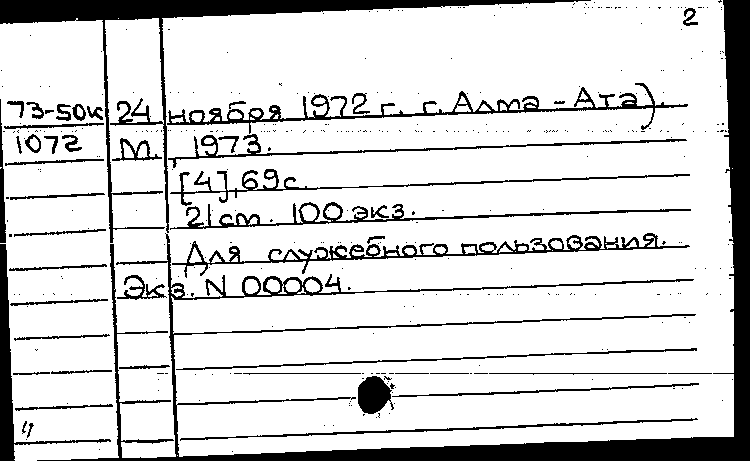 2
73-50к 24 ноября 1972 г. г. Алма-Ата).
1072 М., 1973.
[4], 69 с.
21 см. 100 экз.
Для служебного пользования.
Экз. N 00004.